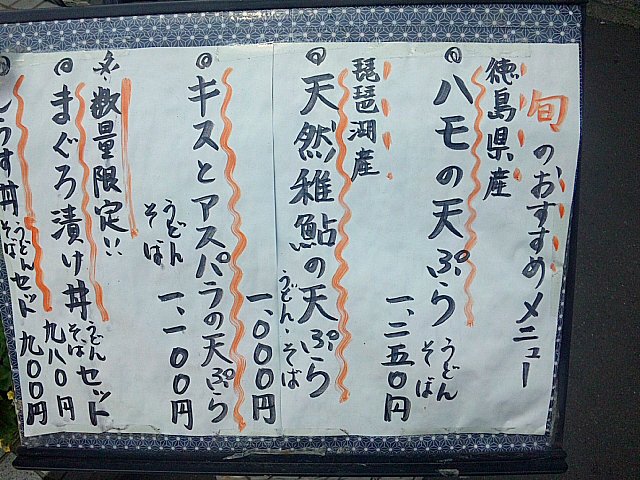 旬のおすすめメニュー
徳島県産
ハモの天ぷら
うどん
そば
一、二五0円
琵琶湖産
天然稚鮎の天ぷら
うどん・そば
一、000円
キスとアスパラの天ぷら
うどん
そば
一、一00円
数量限定!!
まぐろ漬け丼
うどん
そば
セット
九八0円
らす丼
うどん
そば
セット
九00円